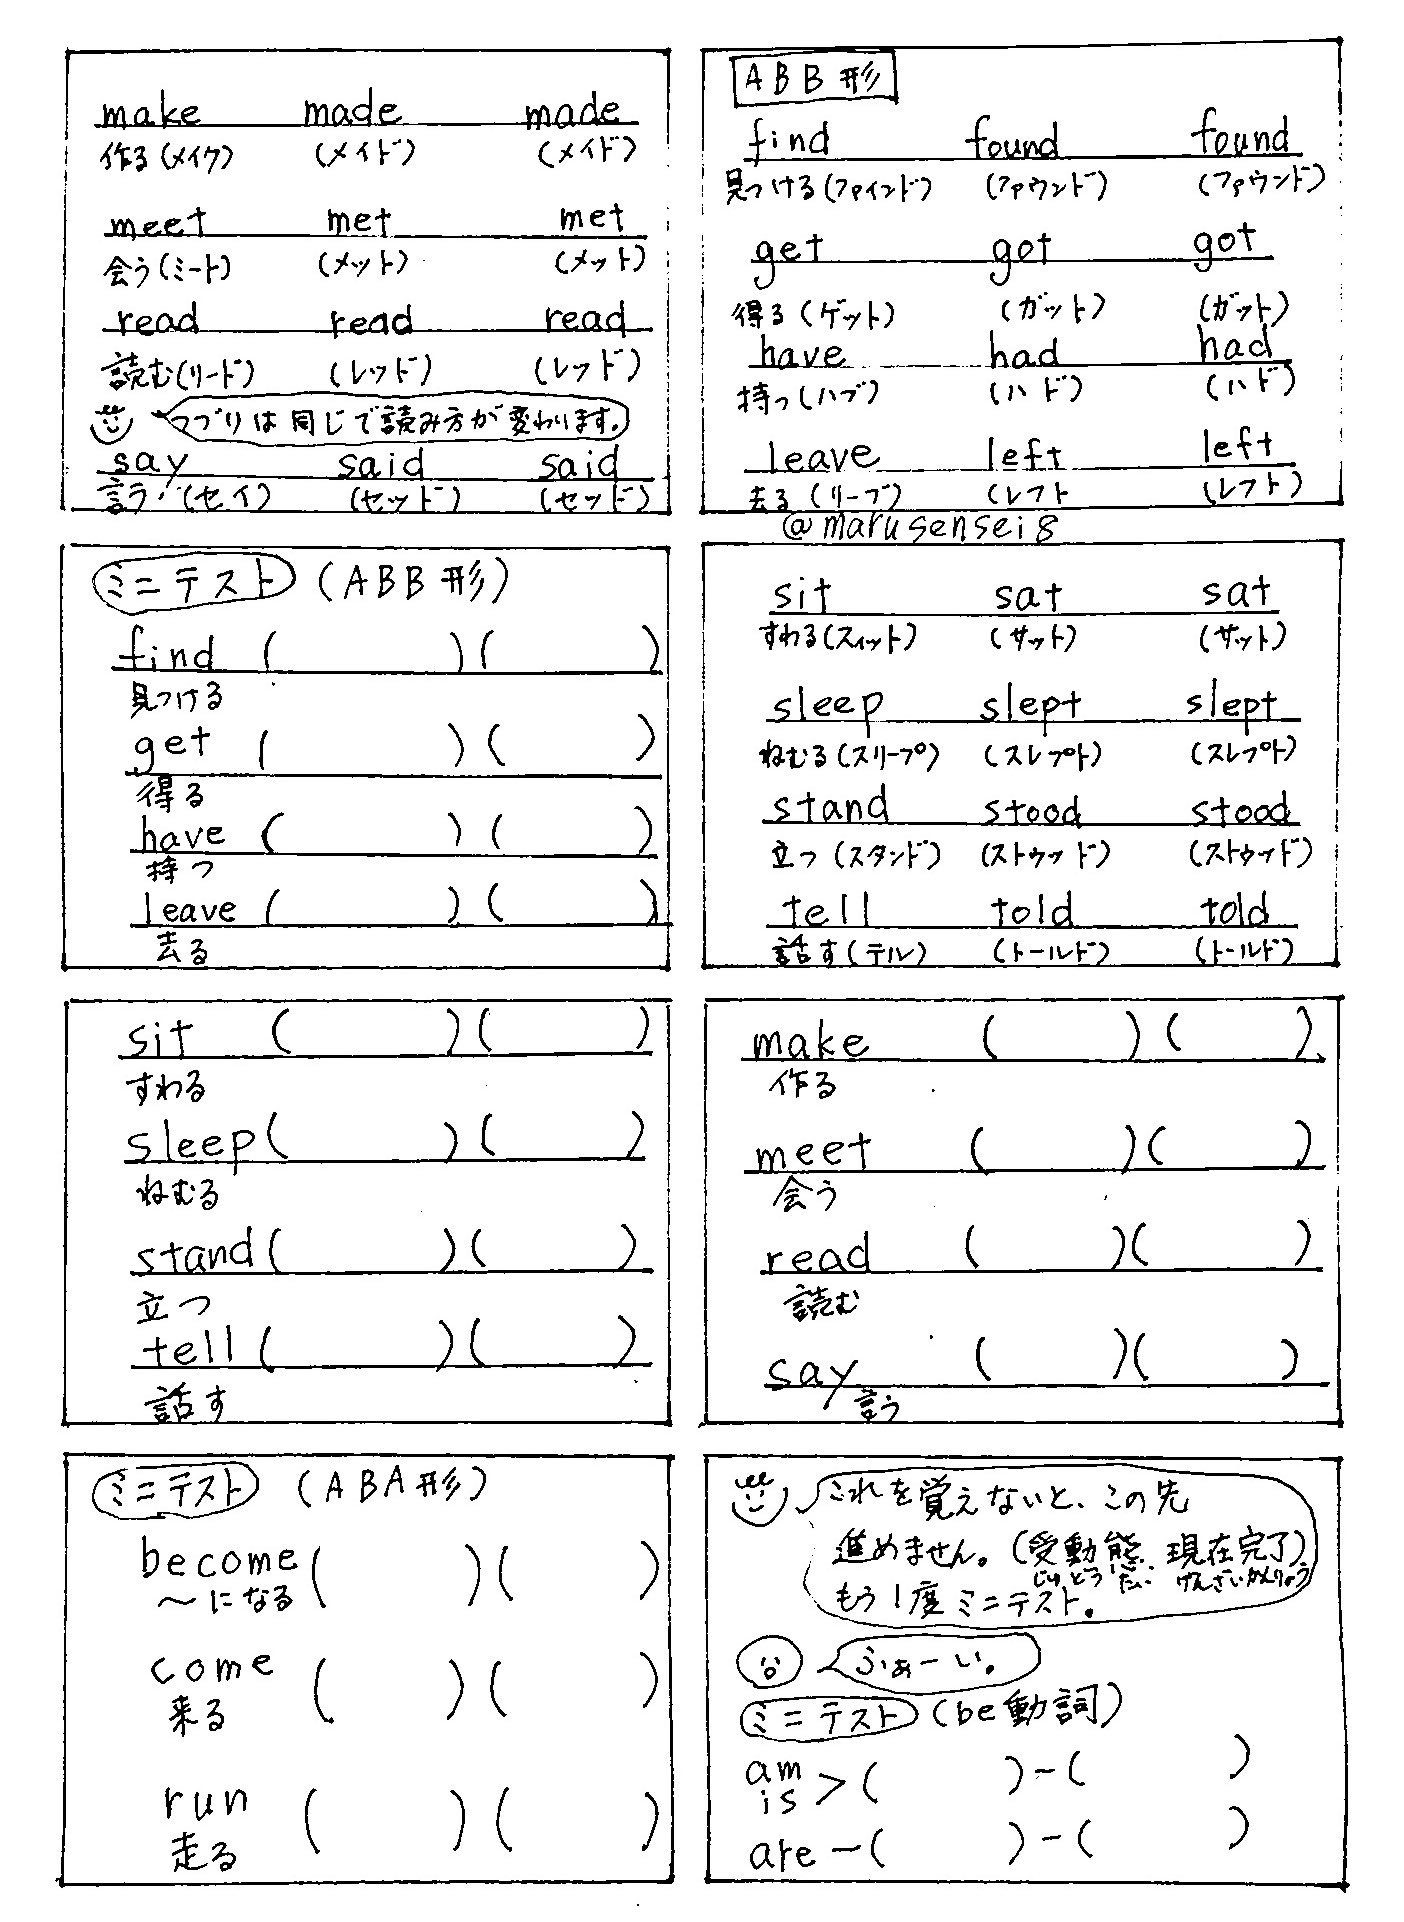 make made made
作る(メイク) (メイド) (メイド)
meet met met
会う(ミート) (メット) (メット)
read read read
読む(リード) (レッド) (レッド)
つづりは同じで読み方が変わります。
say said said
言う(セイ) (セッド) (セッド)
ABB形
find found found
見つける(ファインド) (ファウンド) (ファウンド)
get got got
得る(ゲット) (ガット) (ガット)
have had had
持つ(ハブ) (ハド) (ハド)
leave left left
去る(リーブ) (レフト (レフト)
@marusensei8
ミニテスト (ABB形)
find ( ) ( )
見つける
get ( ) ( )
得る
have ( ) ( )
持つ
leave ( ) ( )
去る
sit sat sat
すわる(スィット) (サット) (サット)
sleep slept slept
ねむる(スリープ) (スレプト) (スレプト)
stand stood stood
立つ(スタンド) (ストゥッド) (ストゥッド)
tell told told
話す(テル) (トールド) (トールド)
sit ( ) ( )
すわる
sleep ( ) ( )
ねむる
stand ( ) ( )
立つ
tell ( ) ( )
話す
make ( ) ( )
作る
meet ( ) ( )
会う
read ( ) ( )
読む
say ( ) ( )
言う
ミニテスト (ABA形)
become ( ) ( )
～になる
come ( ) ( )
来る
run ( ) ( )
走る
これを覚えないと、この先
進めません。(受動態、現在完了)
じゅどうたい げんざいかんりょう
もう1度ミニテスト。
ふぁーい。
ミニテスト (be動詞)
am
is > ( ) - ( )
are - ( ) - ( )